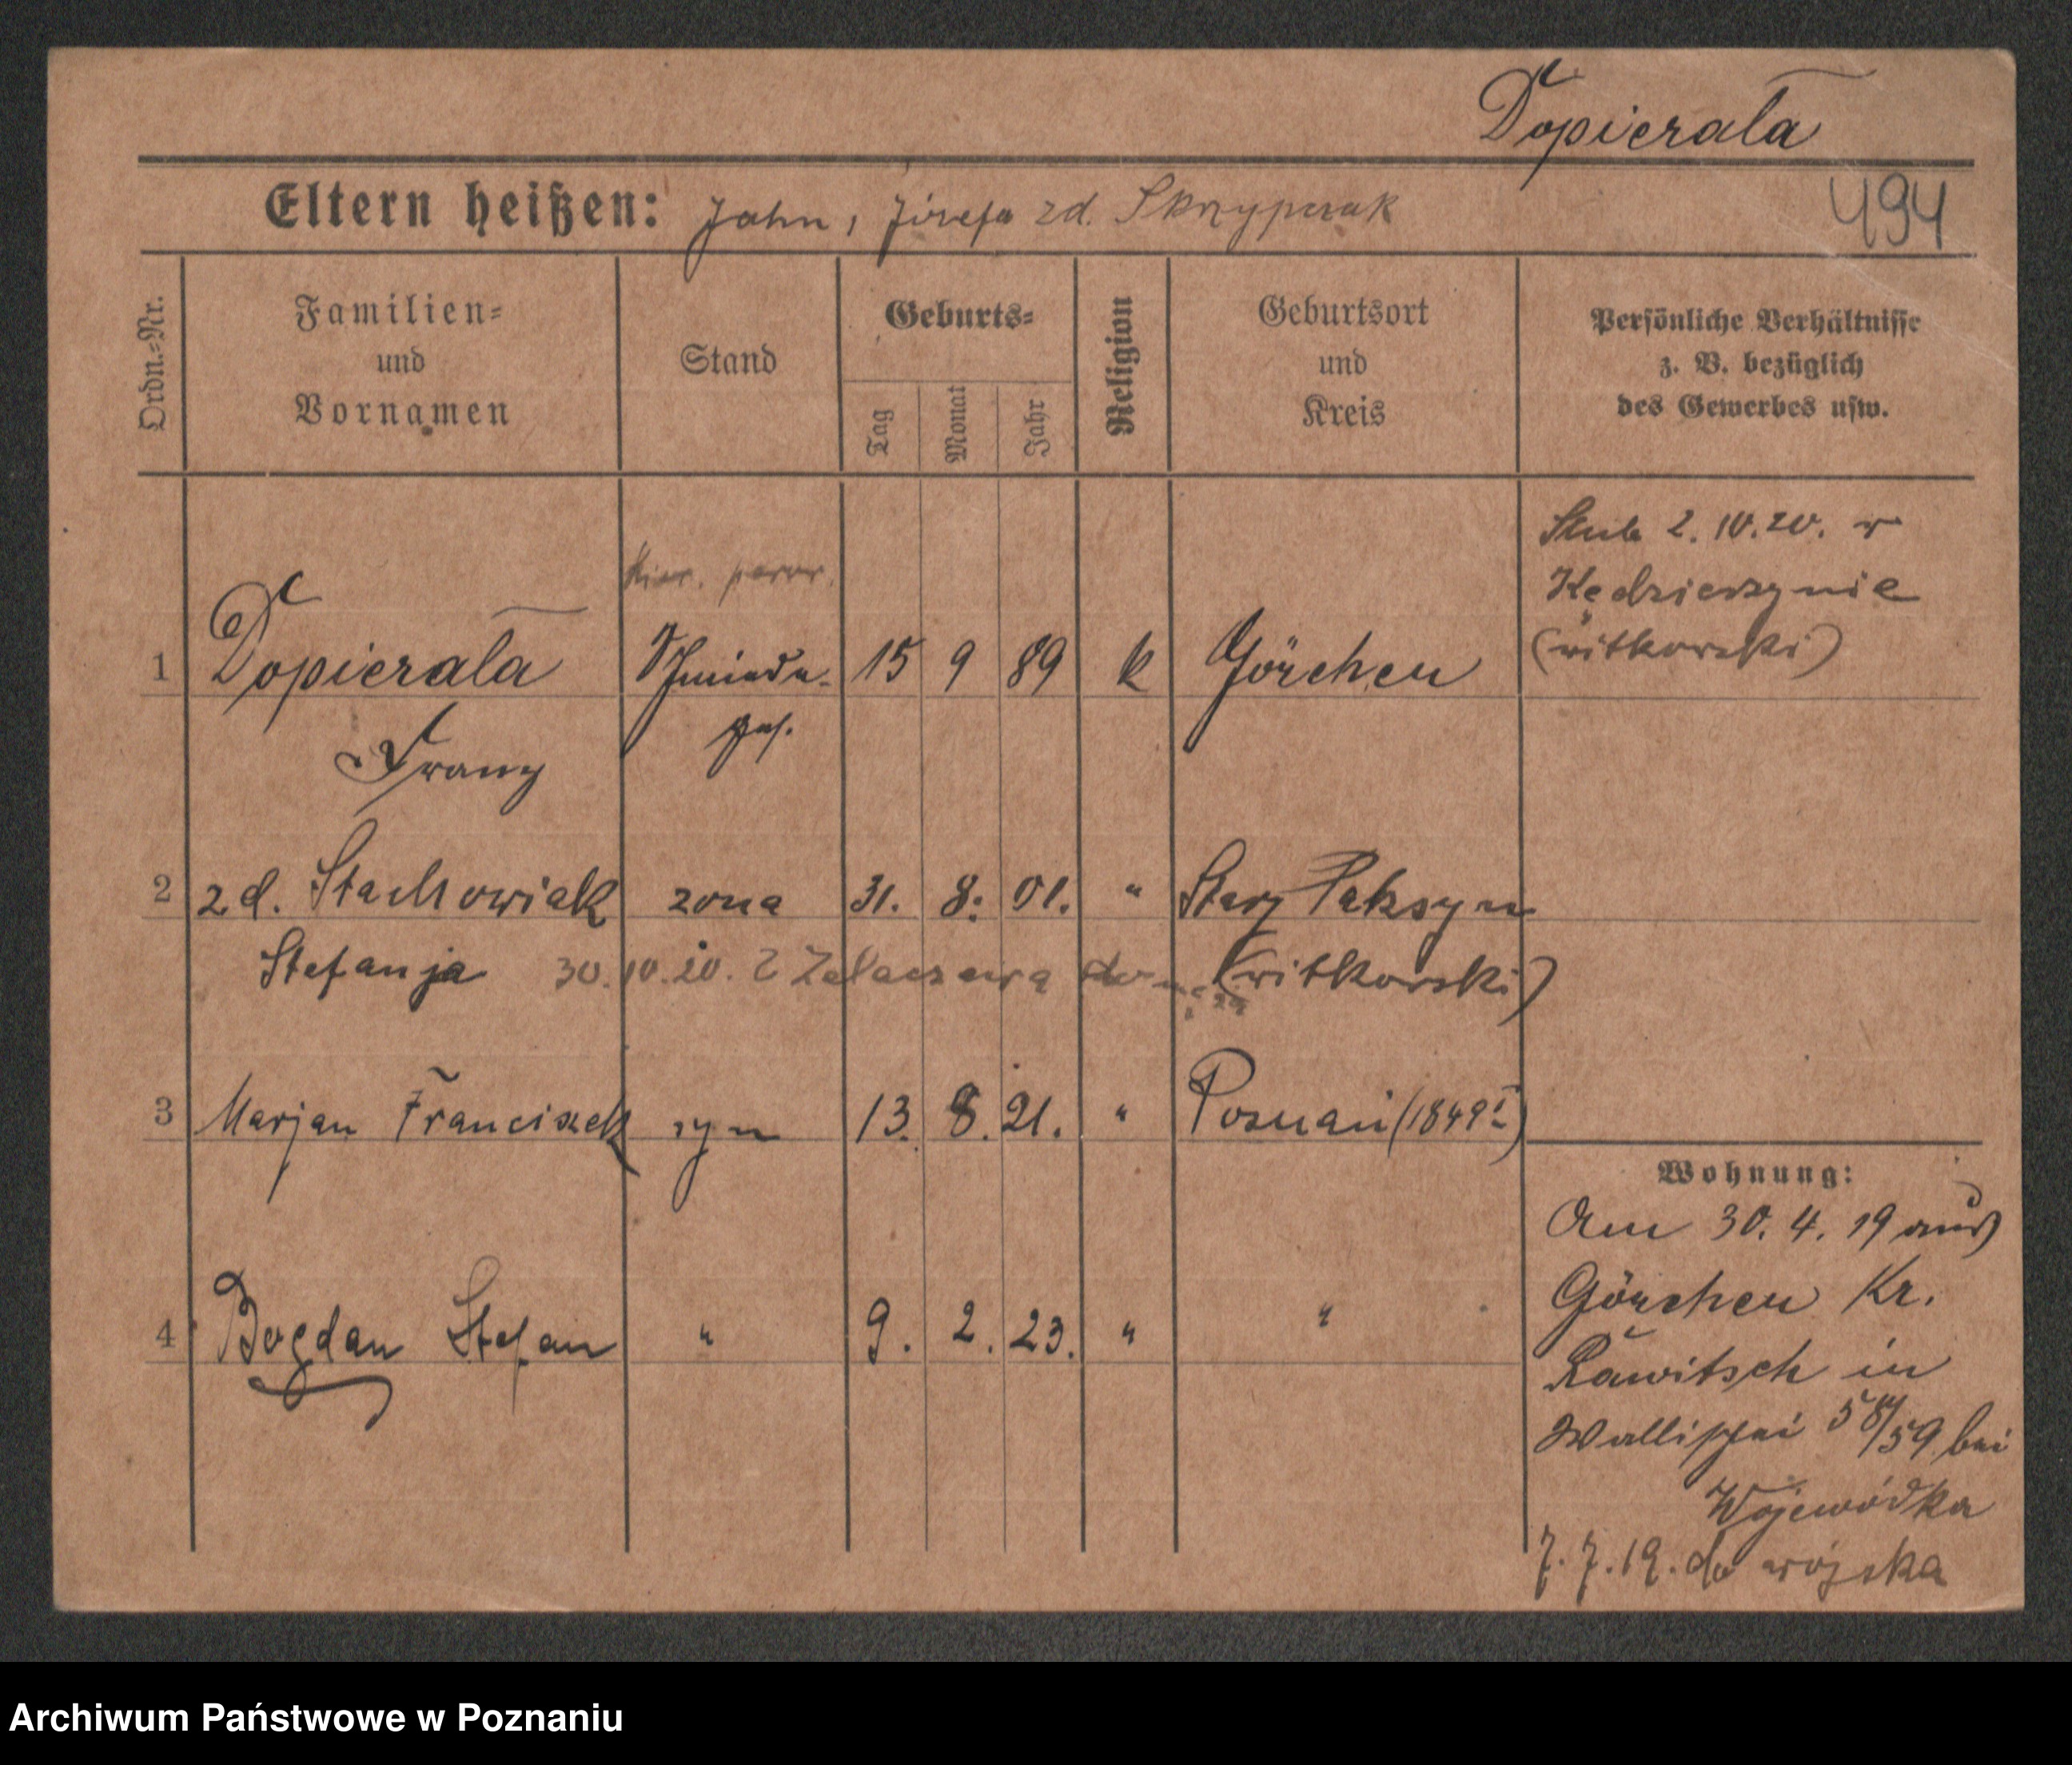 Dopierała
Eltern heißen: Jahn, Józefa zd. Skrzypczak
494
Ordn.-Nr.
Familien-
und
Vornamen
Stand
Geburts-
Tag
Monat
Jahr
Religion
Geburtsort
und
Kreis
Persönliche Verhältnisse
z. B. bezüglich
des Gewerbes usw.
Ślub 2. 10. 20. w
Kędzierzynie
(witkowski)
1 Dopierała Schmiede- 15 9 89 k Görchen
ges.
Franz
2 zd. Stachowiak żona 31. 8. 01. " Stary
Stefanja 30. 10. 20. z (witkowski)
3 Marjan Franciszek syn 13. 8. 21. " Poznań (1849 I)
4 Bogdan Stefan " 9. 2. 23. " "
Wohnung:
Am 30. 4. 19 aus
Görchen Kr.
Rawitsch in
Wallischei 58/59 bei
Wojewódka
7. 7. 19. do wojska
Archiwum Państwowe w Poznaniu